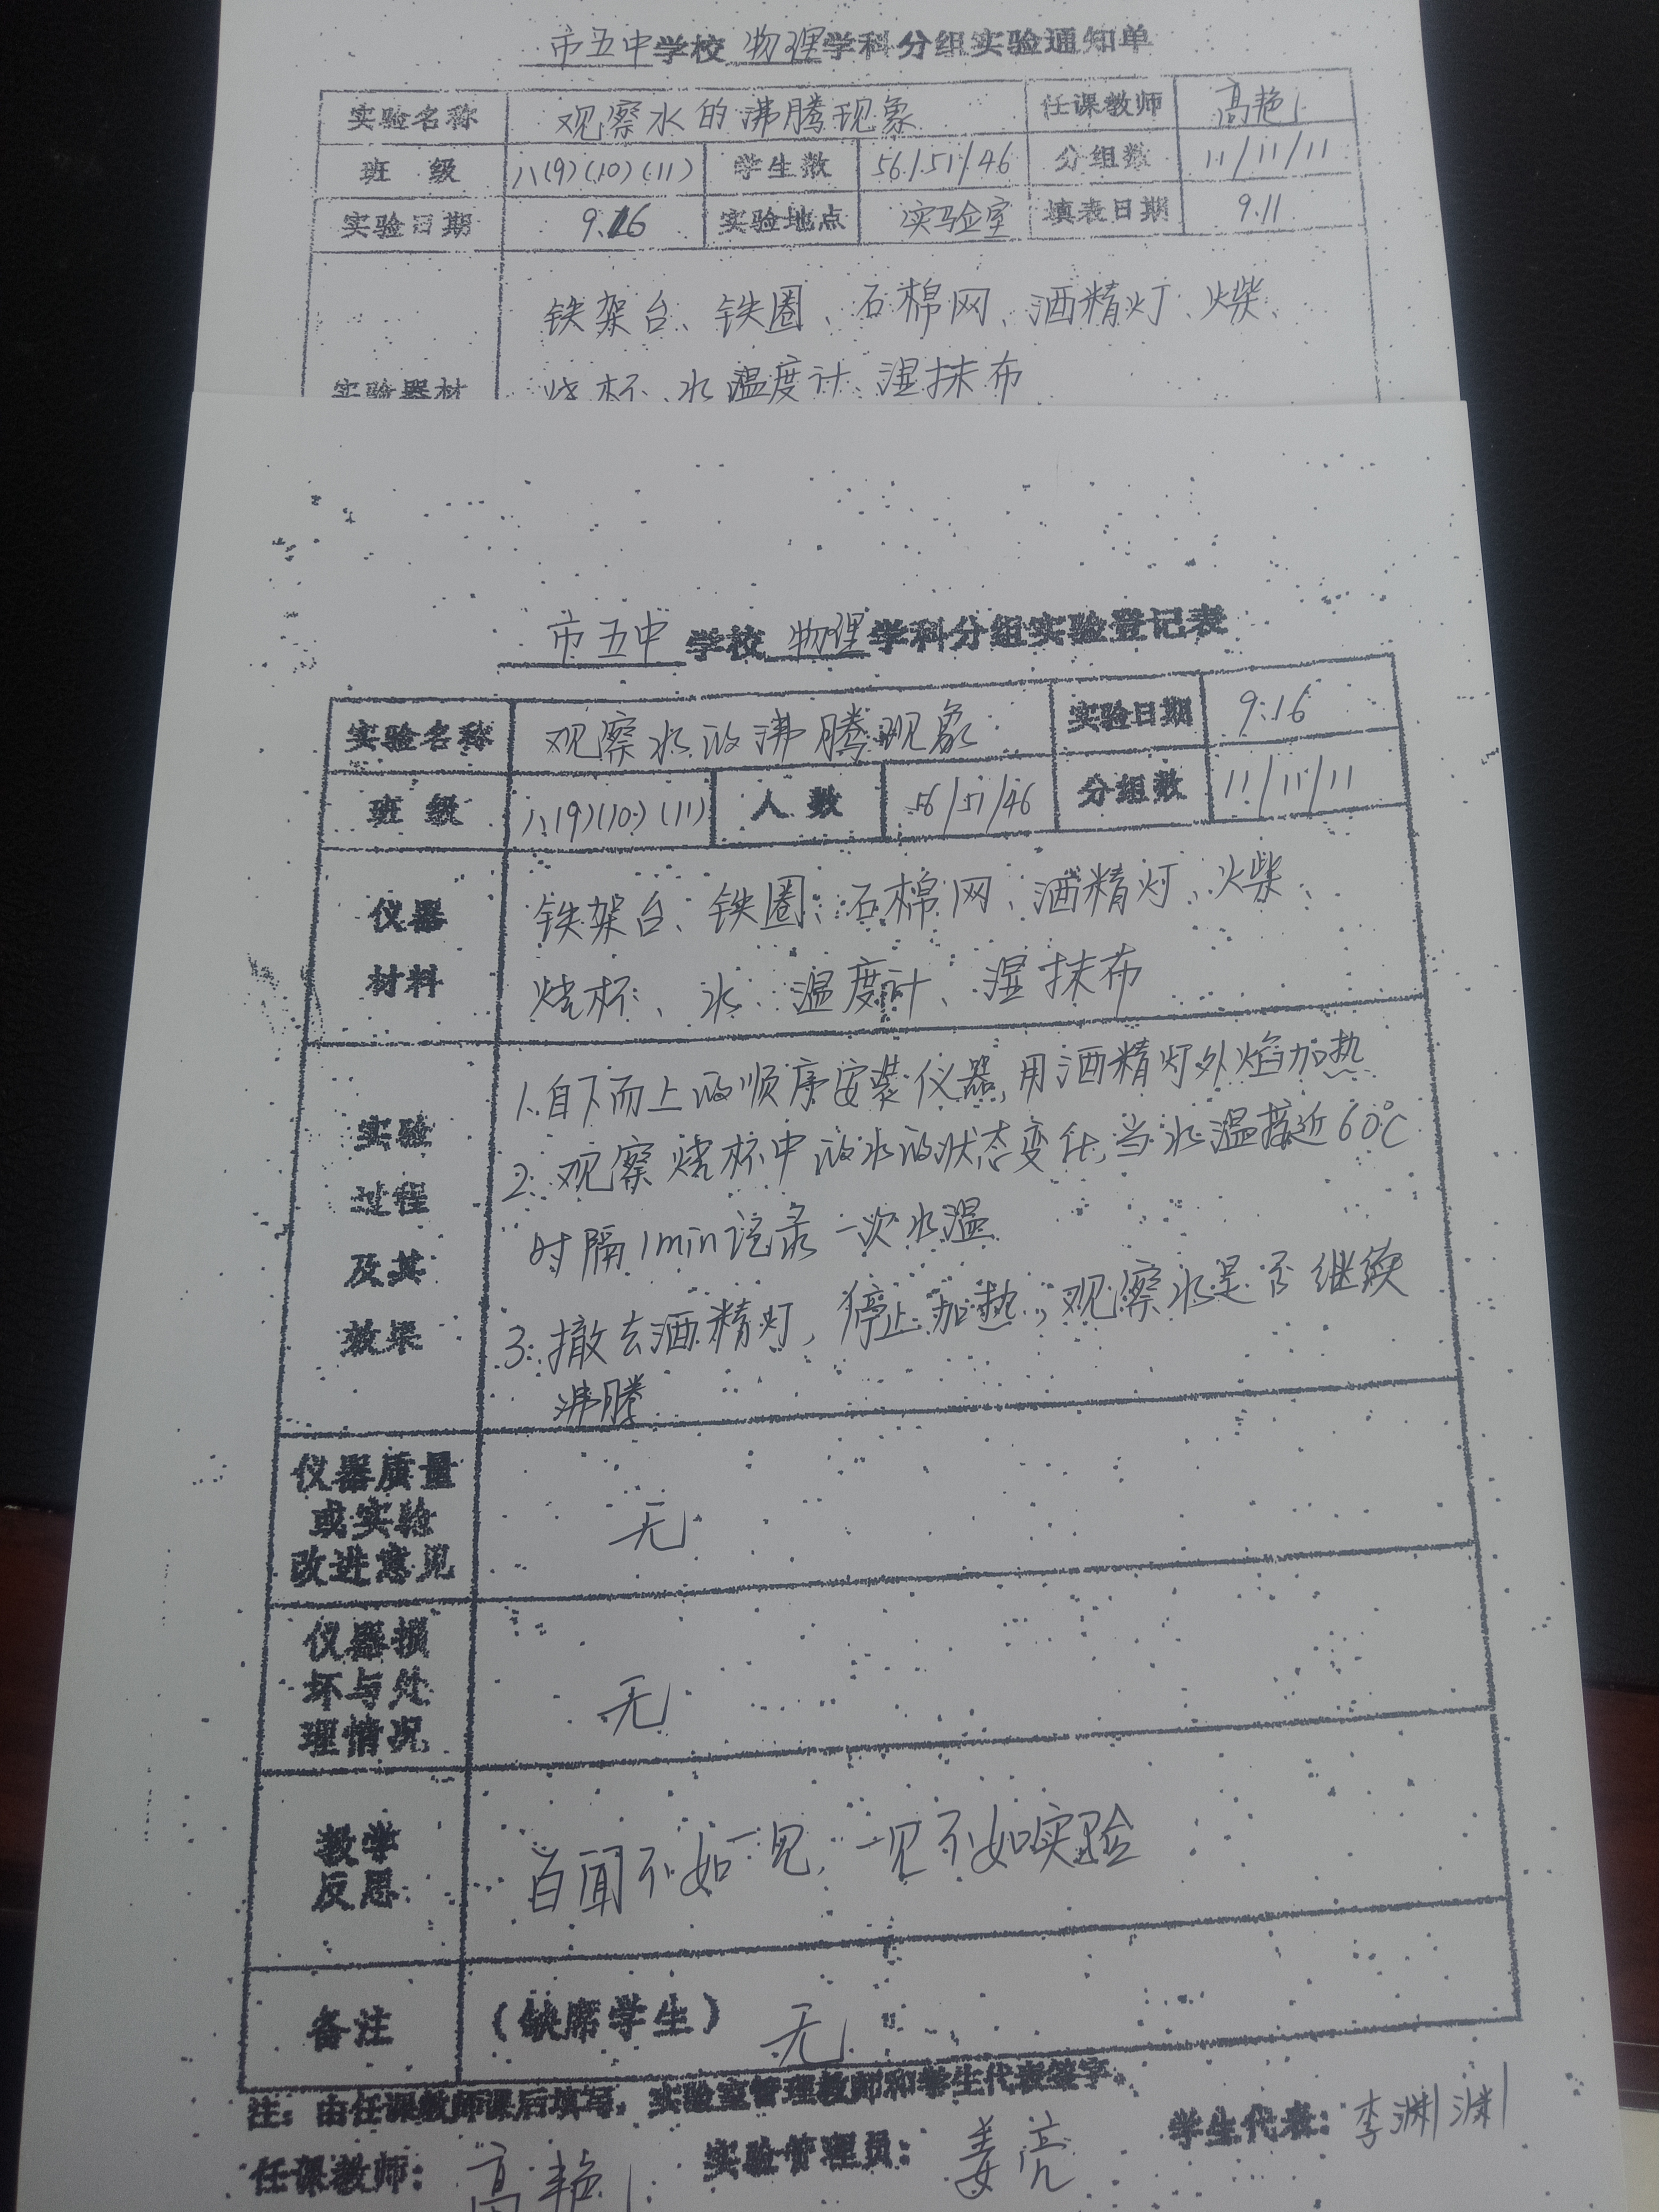 市五中学校 物理学科分组实验通知单
实验名称 观察水的沸腾现象 任课教师 高艳
班 级 八(9)(10)(11) 学生数 56/51/46 分组数 11/11/11
实验日期 9.16 实验地点 实验室 填表日期 9.11
铁架台、铁圈、石棉网、酒精灯、火柴、
实验器材 烧杯、水、温度计、湿抹布
市五中 学校 物理学科分组实验登记表
实验名称 观察水的沸腾现象 实验日期 9.16
班 级 八(9)(10)(11) 人 数 56/51/46 分组数 11/11/11
仪器 铁架台、铁圈、石棉网、酒精灯、火柴、
材料 烧杯、水、温度计、湿抹布
1.自下而上的顺序安装仪器,用酒精灯外焰加热
实验 2.观察烧杯中的水的状态变化,当水温接近60℃
过程 时隔1min记录一次水温
及其 3.撤去酒精灯,停止加热,观察水是否继续
效果 沸腾
仪器质量
或实验 无
改进意见
仪器损
坏与处 无
理情况
教学 百闻不如一见,一见不如实验
反思
备注 (缺席学生) 无
注:由任课教师课后填写,实验室管理教师和学生代表签字。
任课教师: 高艳 实验管理员: 姜亮 学生代表: 李渊渊